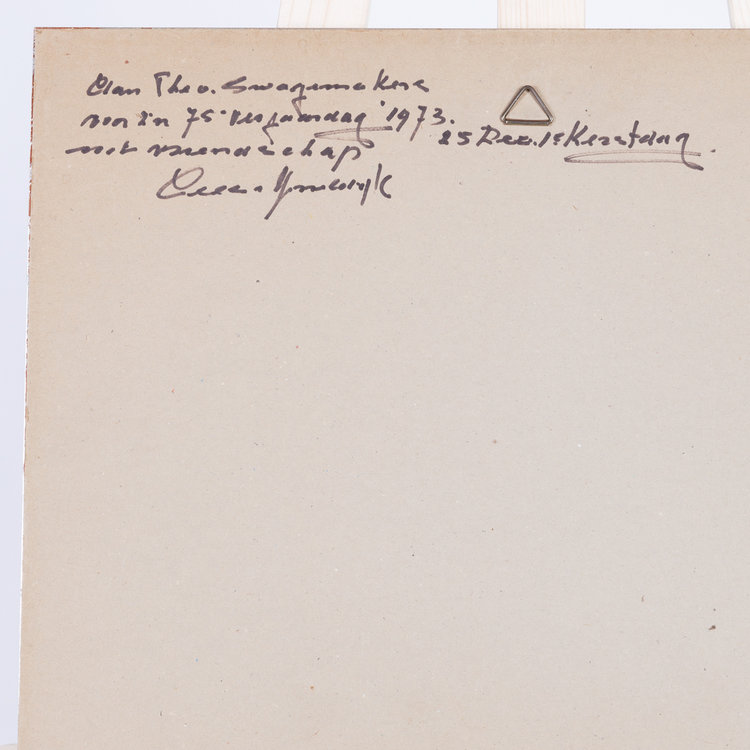 Aan Theo. Swagemakers
voor z'n 75e verjaardag 1973.
25 Dec. 1e Kerstdag.
met vriendschap